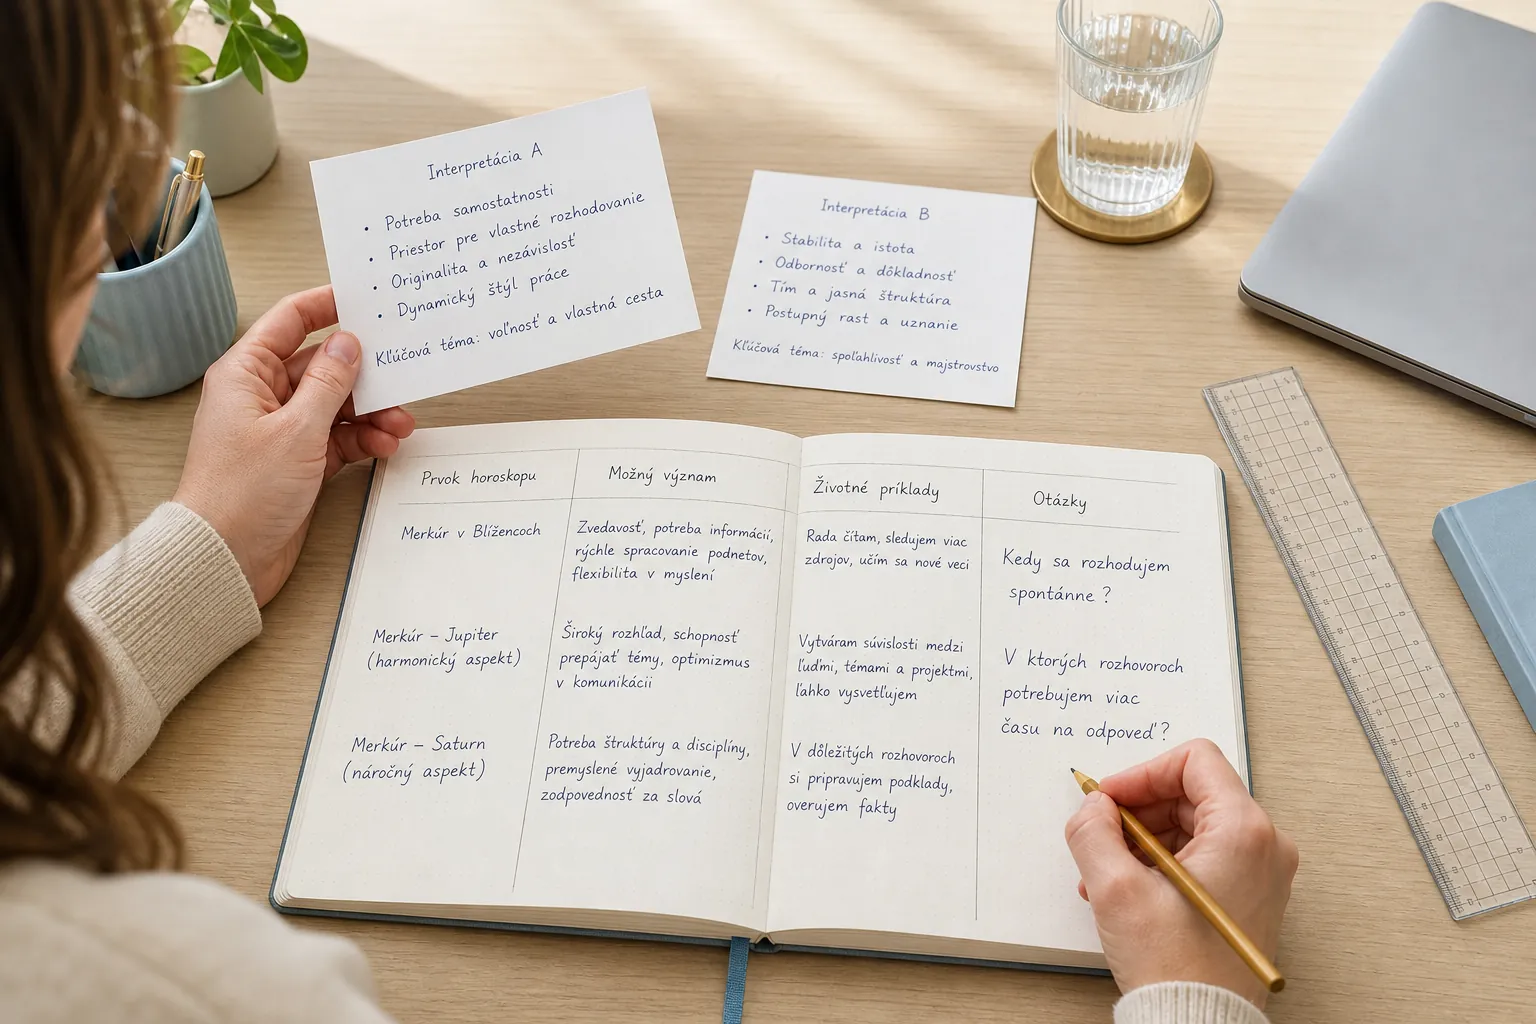 Interpretácia A
• Potreba samostatnosti
• Priestor pre vlastné rozhodovanie
• Originalita a nezávislosť
• Dynamický štýl práce
Kľúčová téma: voľnosť a vlastná cesta
Interpretácia B
• Stabilita a istota
• Odbornosť a dôkladnosť
• Tím a jasná štruktúra
• Postupný rast a uznanie
Kľúčová téma: spoľahlivosť a majstrovstvo
Prvok horoskopu
Možný význam
Životné príklady
Otázky
Merkúr v Blížencoch
Zvedavosť, potreba informácií,
rýchle spracovanie podnetov,
flexibilita v myslení
Rada čítam, sledujem viac
zdrojov, učím sa nové veci
Kedy sa rozhodujem
spontánne ?
Merkúr – Jupiter
(harmonický aspekt)
Široký rozhľad, schopnosť
prepájať témy, optimizmus
v komunikácii
Vytváram súvislosti medzi
ľuďmi, témami a projektmi,
ľahko vysvetľujem
V ktorých rozhovoroch
potrebujem viac
času na odpoveď ?
Merkúr – Saturn
(náročný aspekt)
Potreba štruktúry a disciplíny,
premyslené vyjadrovanie,
zodpovednosť za slová
V dôležitých rozhovoroch
si pripravujem podklady,
overujem fakty